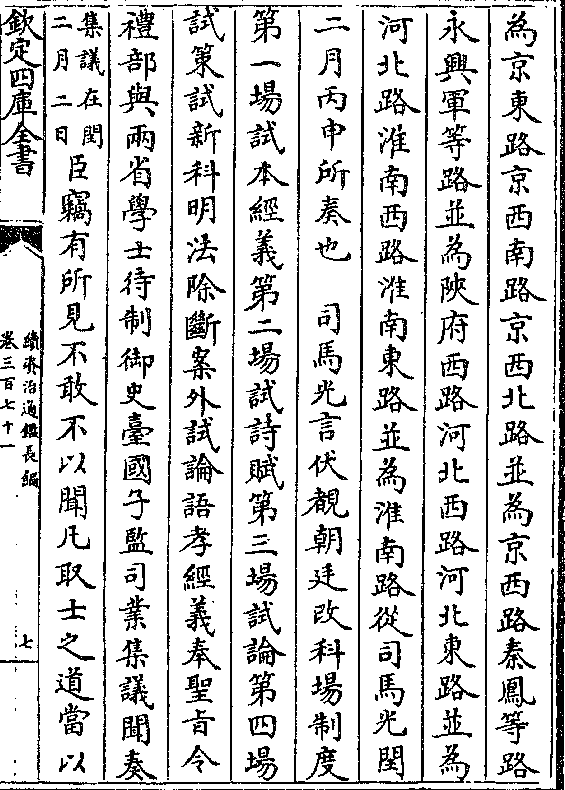 為京東路京西南路京西北路並為京西路秦鳳等路
永興軍等路並為陝府西路河北西路河北東路並為
河北路淮南西路淮南東路並為淮南路從司馬光閏
二月丙申所奏也　司馬光言伏覩朝廷改科場制度
第一場試本經義第二場試詩賦第三場試論第四場
試策試新科明法除斷案外試論語孝經義奉聖旨令
禮部與兩省學士待制御史臺國子監司業集議聞奏
集議在閏
二月二日
臣竊有所見不敢不以聞凡取士之道當以
欽定四庫全書
續資治通鑑長編
卷三百七十一
七